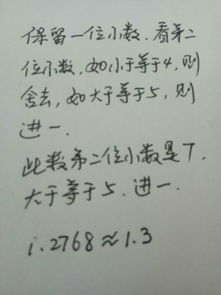 保留一位小数.看第二
位小数,如小于等于4,则
舍去,如大于等于5,则
进一.
此数第二位小数是7,
大于等于5.进一.
1.2768≈1.3